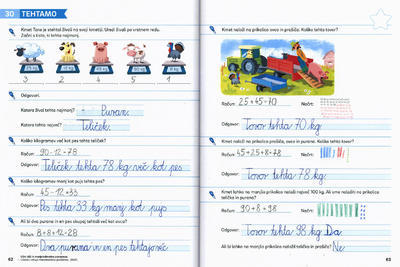 30 TEHTAMO
Kmet Tone je stehtal živali na svoji kmetiji. Uredi živali po vrstnem redu.
Začni s tisto, ki tehta najmanj.
3 2 4 5 1
Odgovori.
Katera žival tehta najmanj? Puran.
Katera tehta največ? Teliček.
Koliko kilogramov več kot pes tehta teliček?
Račun: 90-12=78
Odgovor: Teliček tehta 78 kg več kot pes
Koliko kilogramov manj kot pujs tehta pes?
Račun: 45-12=33
Odgovor: Pes tehta 33 kg manj kot pujs
Ali bi dva purana in en pes skupaj tehtali več kot ovca?
Račun: 8+8+12=28
Odgovor: Dva purana in en pes tehtajo več
62
Kmet na prikolico naloži ovco in prašiča. Koliko tehta tovor?
Račun: 25+45=70
Odgovor: Tovor tehta 70 kg
Kmet na prikolico naloži prašiča, ovco in purana. Koliko tehta tovor?
Račun: 45+25+8=78
Odgovor: Tovor tehta 78 kg.
Kmet lahko na manjšo prikolico naloži največ 100 kg. Ali sme naložiti na prikolico
telička in purana?
Račun: 90+8=98
Odgovor: Tovor tehta 98 kg Da
Ali bi lahko na manjšo prikolico naložil telička in prašiča? Ne
63